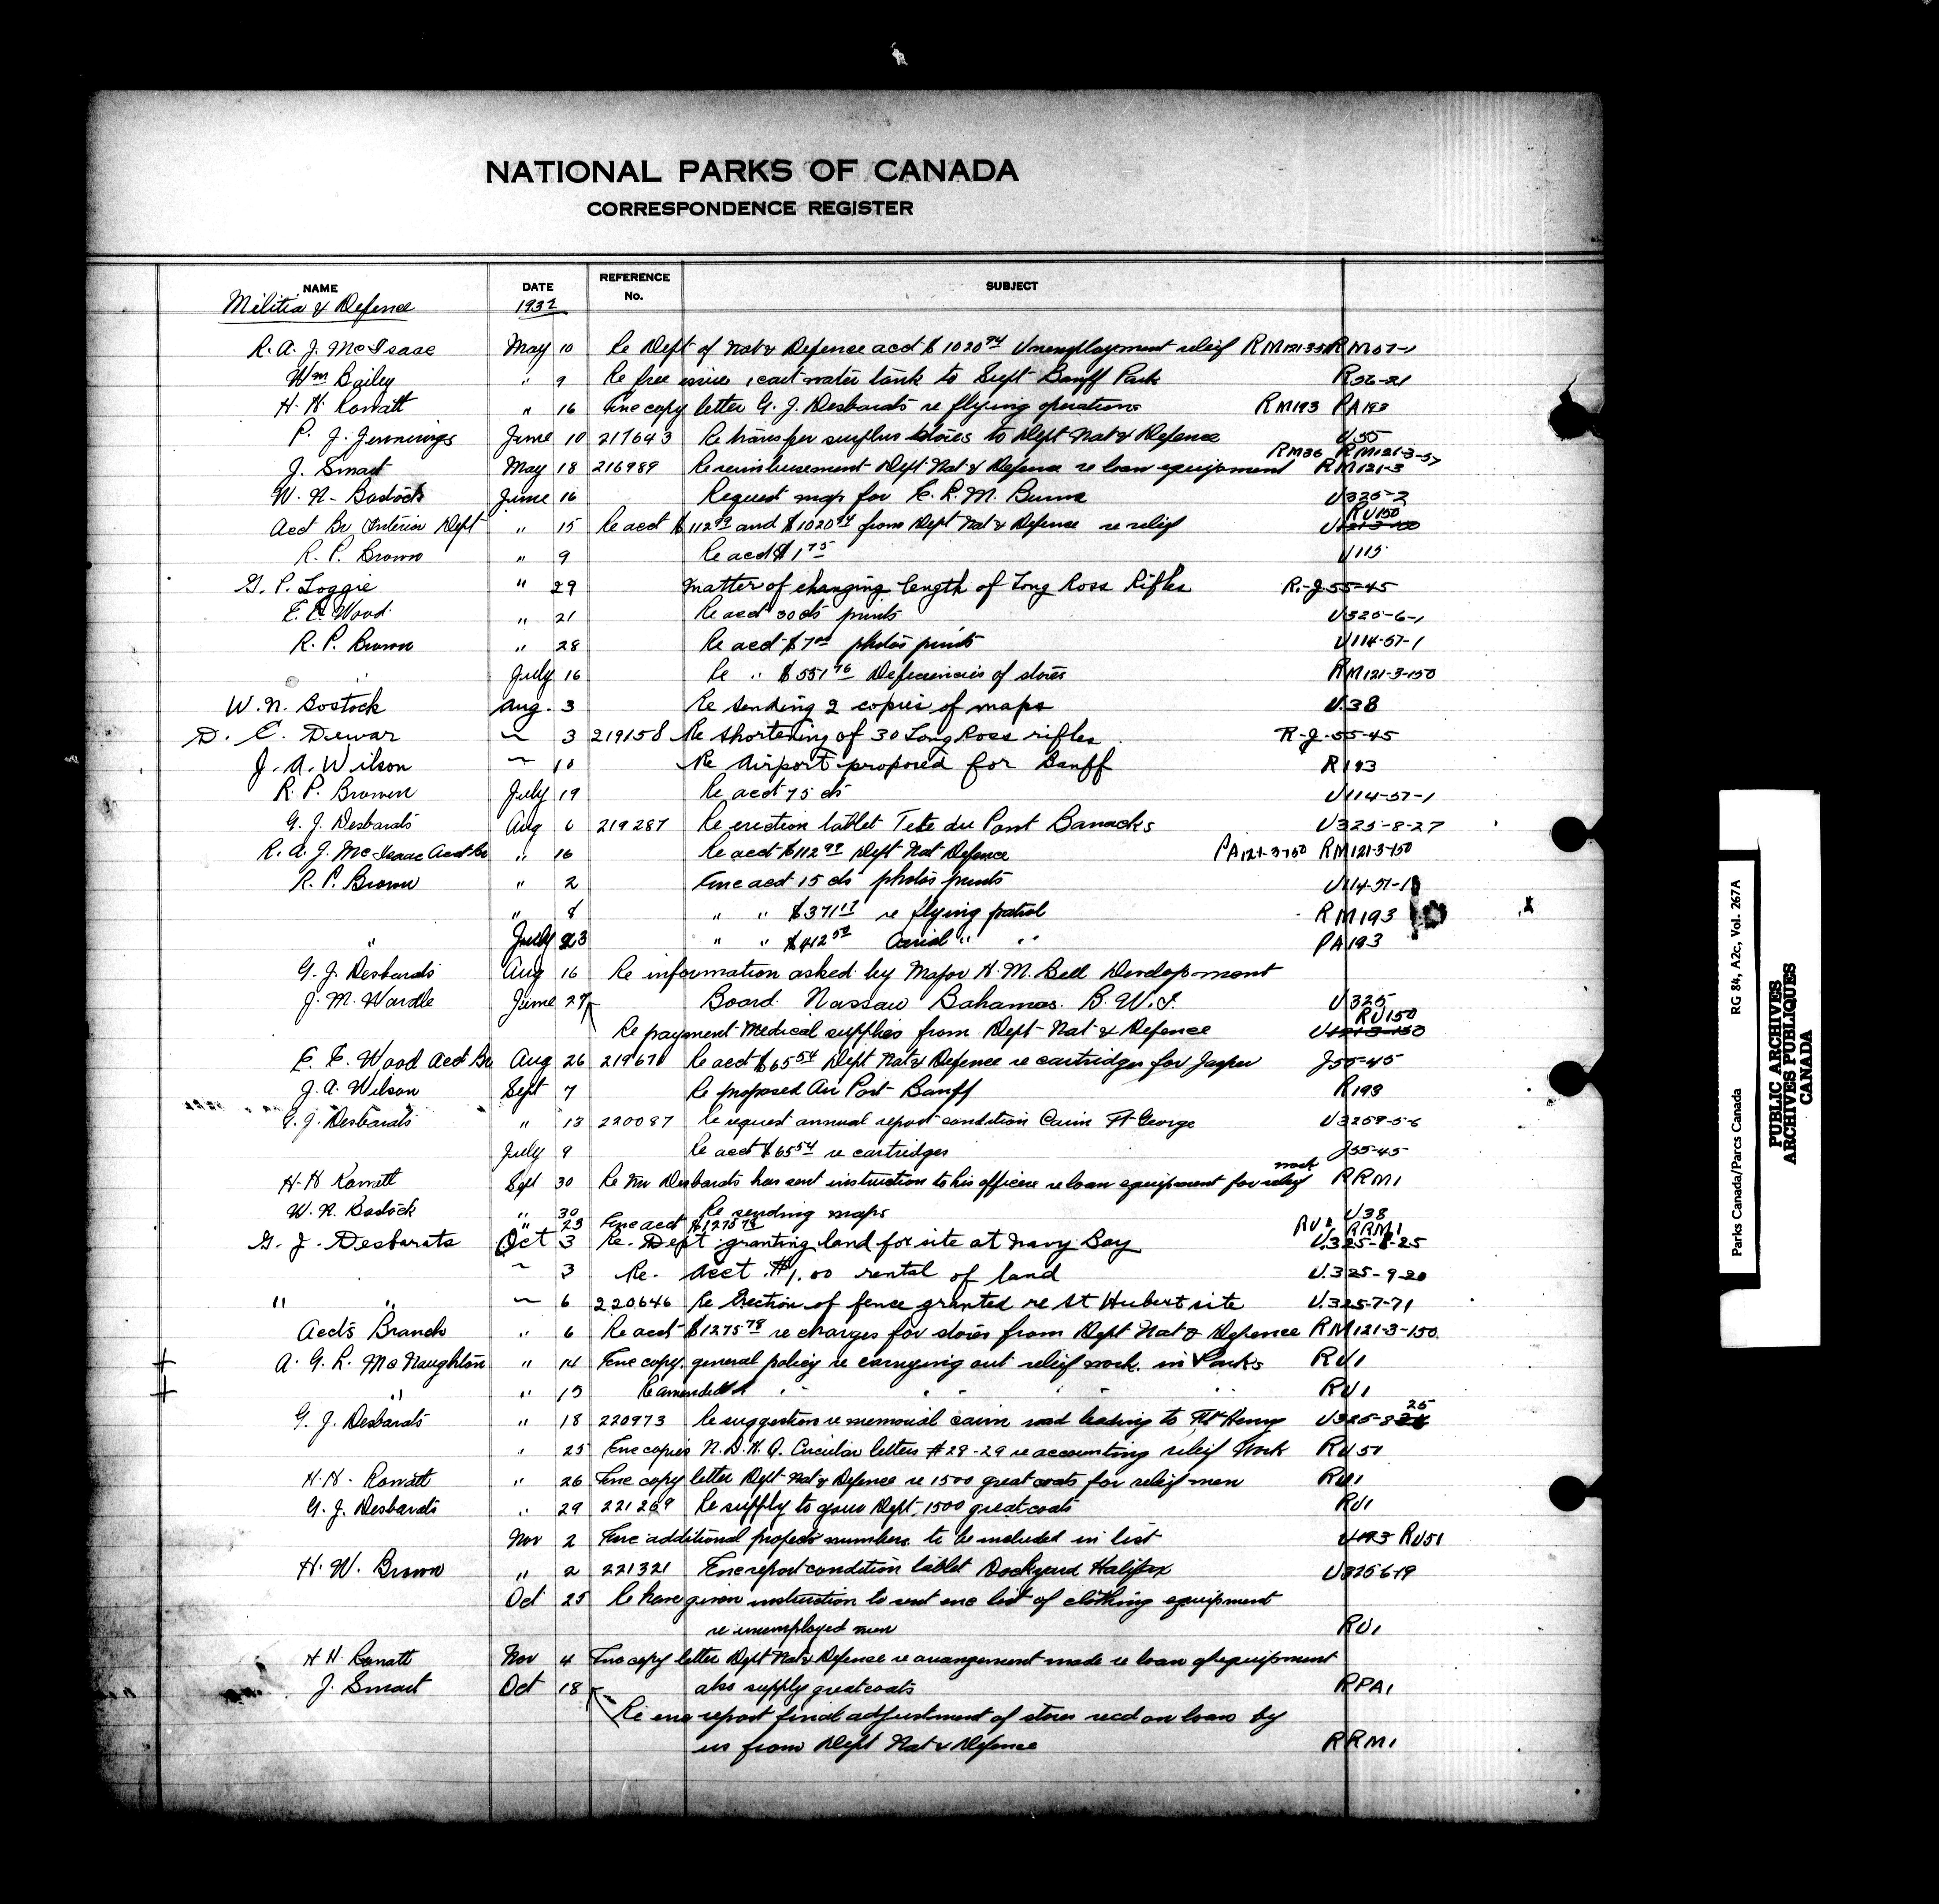 NATIONAL PARKS OF CANADA
CORRESPONDENCE REGISTER
NAME DATE REFERENCE No. SUBJECT
Militia & Defence 1932
R. A. J. McIsaac May 10 Re Dept of Nat & Defence acct $1020 94 Unemployment relief RM121-3-57 RM57-1
Wm Bailey " 9 Re free issue 1 cart water tank to Supt Banff Park R36-21
H. H. Rowatt " 16 Enc copy letter G. J. Desbarats re flying operations RM193 PA193
P. J. Jennings June 10 217643 Re transfer surplus stores to Dept Nat & Defence U55
RM36 RM121-3-57
J. Smart May 18 216989 Re reimbursement Dept Nat & Defence re loan equipment RM121-3
W. N. Bostock June 16 Request map for E. L. M. Burns U325-2
RU150
Acct Br Interior Dept " 15 Re acct $112 99 and $1020 94 from Dept Nat & Defence re relief U121-3-150
R. P. Brown " 9 Re acct $1 75 U115
G. P. Loggie " 29 Matter of changing length of Long Ross Rifles R.-J-55-45
E. E. Wood " 21 Re acct 30cts prints U325-6-1
R. P. Brown " 28 Re acct $7 00 photos prints U114-57-1
" July 16 Re " $551 76 Deficiencies of stores RM121-3-150
W. N. Bostock Aug. 3 Re sending 2 copies of maps U.38
D. E. Dewar 3 219158 Re shortening of 30 Long Ross rifles R-J-55-45
J. A. Wilson 10 Re Airport proposed for Banff R193
R. P. Brown July 19 Re acct 75 cts U114-57-1
G. J. Desbarats Aug 6 219287 Re erection tablet Tete du Pont Barracks U325-8-27
R. A. J. McIsaac Acct Br " 16 Re acct $112 99 Dept Nat Defence PA121-3-150 RM121-3-150
R. P. Brown " 2 Enc acct 15 cts photos prints U114-57-1
" 8 " " $371 17 re flying patrol RM193
" July 23 " " $412 50 Aerial " " PA193
G. J. Desbarats Aug 16 Re information asked by Major H. M. Bell Development
J. M. Wardle June 27 Board Nassau Bahamas B. W. I. U325
RU150
Re payment Medical supplies from Dept Nat & Defence U121-3-150
E. E. Wood Acct Br Aug 26 219670 Re acct $65 54 Dept Nat & Defence re cartridges for Jasper J55-45
J. A. Wilson Sept 7 Re proposed Air Port Banff R193
G. J. Desbarats " 13 220087 Re request annual report condition Cairn Ft George U3259-5-6
July 9 Re acct $65 54 re cartridges J55-45
work
H. H. Rowatt Sept 30 Re Mr Desbarats has sent instruction to his officers re loan equipment for relief RRM1
W. N. Bostock " 30 Re sending maps U38
" 23 Enc acct $1275 78 RU1 RRM1
G. J. Desbarats Oct 3 Re. Dept granting land for site at Navy Bay U.325-8-25
3 Re. Acct $1.00 rental of land U.325-9-20
" " 6 220646 Re Erection of fence granted re St Hubert site U.325-7-71
Accts Branch " 6 Re acct $1275 78 re charges for stores from Dept Nat & Defence RM121-3-150
A. G. L. McNaughton " 14 Enc copy general policy re carrying out relief work in Parks RU1
" " 15 Re amended " " " " " RU1
25
G. J. Desbarats " 18 220973 Re suggestion re memorial cairn road leading to Ft Henry U325-8
" 25 Enc copies N.D.H.Q. Circular letters #28-29 re accounting relief Work RU51
H. H. Rowatt " 26 Enc copy letter Dept Nat & Defence re 1500 great coats for relief men RU1
G. J. Desbarats " 29 221269 Re supply to your Dept, 1500 great coats RU1
Nov 2 Enc additional projects numbers to be included in list U193 RU51
H. W. Brown " 2 221321 Enc report condition tablet Dockyard Halifax U325619
Oct 25 Re have given instruction to sent enc list of clothing equipment
re unemployed men RU1
H H. Rowatt Nov 4 Enc copy letter Dept Nat & Defence re arrangement made re loan of equipment
J. Smart Oct 18 also supply great coats RPA1
Re enc report final adjustment of stores recd on loan by
us from Dept Nat & Defence RRM1
Parks Canada/Parcs Canada RG 84, A2c, Vol. 267A
PUBLIC ARCHIVES
ARCHIVES PUBLIQUES
CANADA